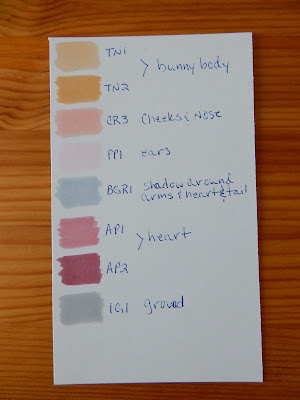 TN1
> bunny body
TN2
CR3 Cheeks & Nose
PP1 ears
BGR1 Shadow around
arms & heart & tail
AP1
> heart
AP2
IG1 ground